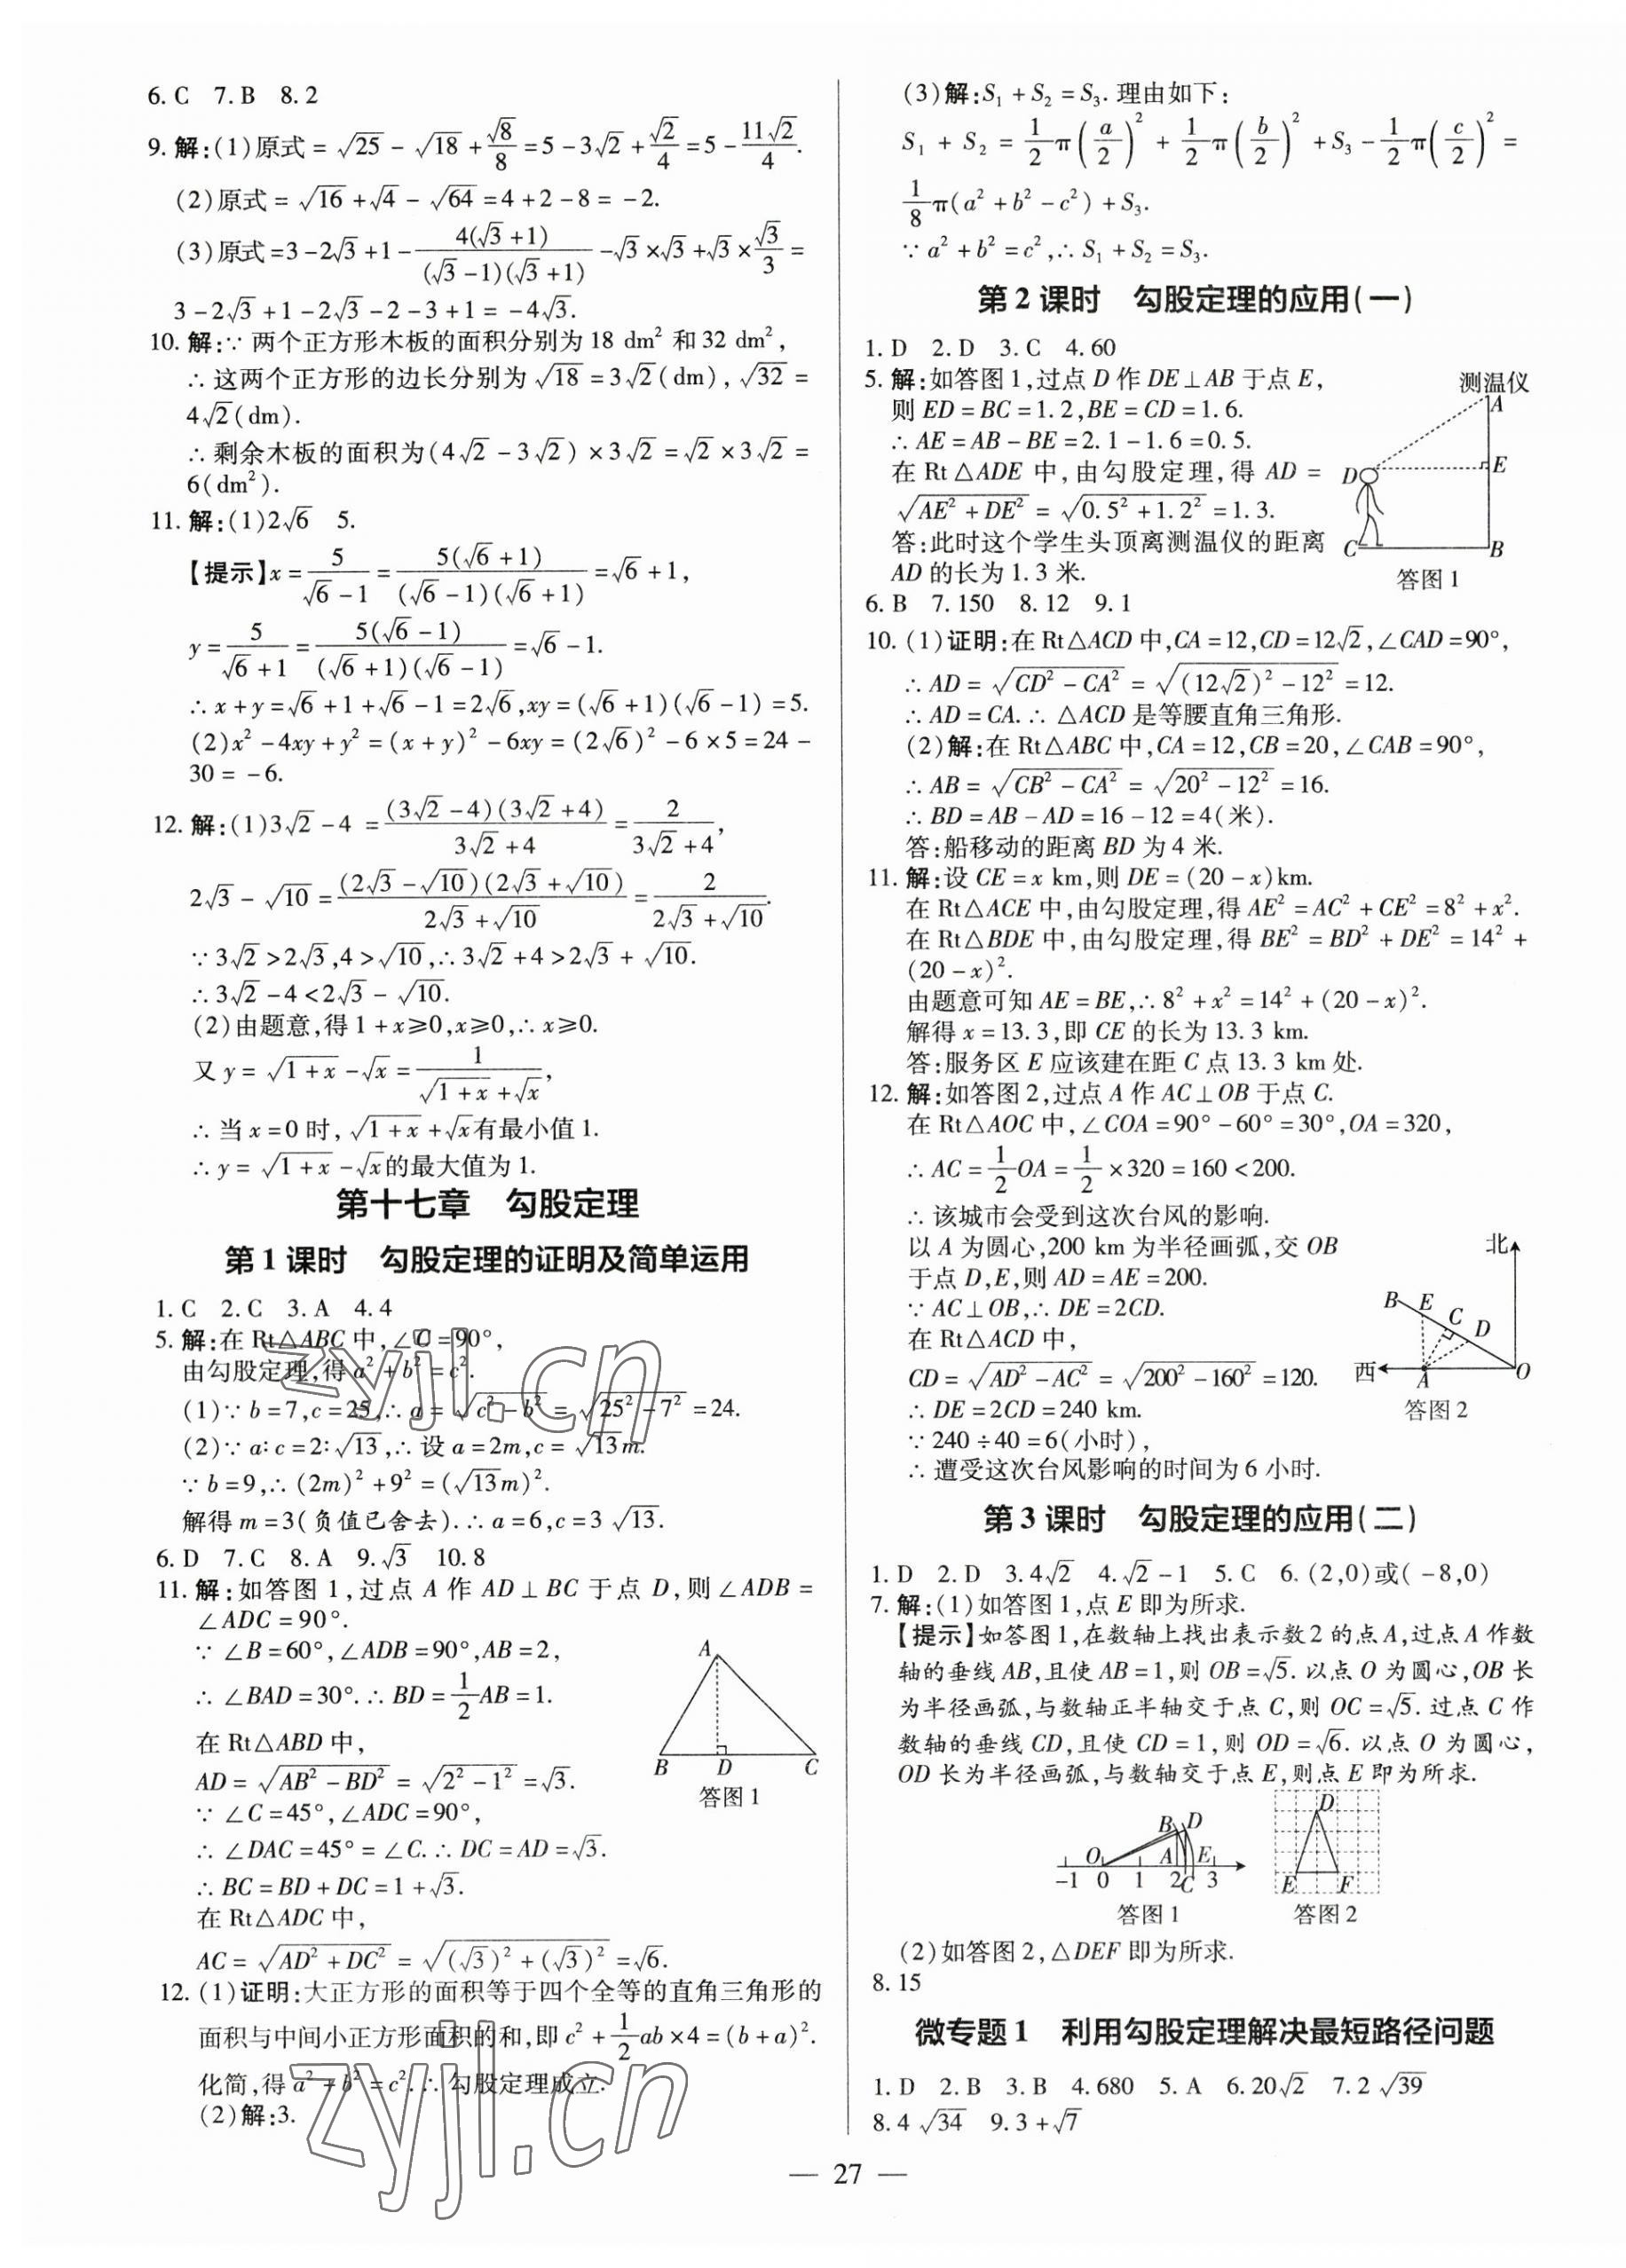 6. C 7. B 8. 2
9. 解:(1)原式 = √25 - √18 + √8/8 = 5 - 3√2 + √2/4 = 5 - 11√2/4.
(2)原式 = √16 + √4 - √64 = 4 + 2 - 8 = -2.
(3)原式 = 3 - 2√3 + 1 - 4(√3 + 1)/((√3 - 1)(√3 + 1)) - √3 × √3 + √3 × √3/3 =
3 - 2√3 + 1 - 2√3 - 2 - 3 + 1 = -4√3.
10. 解:∵ 两个正方形木板的面积分别为 18 dm² 和 32 dm²,
∴ 这两个正方形的边长分别为 √18 = 3√2(dm), √32 =
4√2(dm).
∴ 剩余木板的面积为(4√2 - 3√2) × 3√2 = √2 × 3√2 =
6(dm²).
11. 解:(1)2√6 5.
【提示】x = 5/(√6 - 1) = 5(√6 + 1)/((√6 - 1)(√6 + 1)) = √6 + 1,
y = 5/(√6 + 1) = 5(√6 - 1)/((√6 + 1)(√6 - 1)) = √6 - 1.
∴ x + y = √6 + 1 + √6 - 1 = 2√6, xy = (√6 + 1)(√6 - 1) = 5.
(2)x² - 4xy + y² = (x + y)² - 6xy = (2√6)² - 6 × 5 = 24 -
30 = -6.
12. 解:(1)3√2 - 4 = (3√2 - 4)(3√2 + 4)/(3√2 + 4) = 2/(3√2 + 4),
2√3 - √10 = (2√3 - √10)(2√3 + √10)/(2√3 + √10) = 2/(2√3 + √10).
∵ 3√2 > 2√3, 4 > √10, ∴ 3√2 + 4 > 2√3 + √10.
∴ 3√2 - 4 < 2√3 - √10.
(2)由题意,得 1 + x ≥ 0, x ≥ 0, ∴ x ≥ 0.
又 y = √(1 + x) - √x = 1/(√(1 + x) + √x),
∴ 当 x = 0 时, √(1 + x) + √x有最小值 1.
∴ y = √(1 + x) - √x的最大值为 1.
第十七章 勾股定理
第 1 课时 勾股定理的证明及简单运用
1. C 2. C 3. A 4. 4
5. 解:在 Rt△ABC 中,∠C = 90°,
由勾股定理,得 a² + b² = c².
(1)∵ b = 7, c = 25, ∴ a = √(c² - b²) = √(25² - 7²) = 24.
(2)∵ a∶c = 2∶√13, ∴ 设 a = 2m, c = √13m.
∵ b = 9, ∴ (2m)² + 9² = (√13m)².
解得 m = 3(负值已舍去). ∴ a = 6, c = 3√13.
6. D 7. C 8. A 9. √3 10. 8
11. 解:如答图 1,过点 A 作 AD⊥BC 于点 D,则∠ADB =
∠ADC = 90°.
∵ ∠B = 60°, ∠ADB = 90°, AB = 2,
∴ ∠BAD = 30°. ∴ BD = 1/2 AB = 1.
在 Rt△ABD 中,
AD = √(AB² - BD²) = √(2² - 1²) = √3.
∵ ∠C = 45°, ∠ADC = 90°,
∴ ∠DAC = 45° = ∠C. ∴ DC = AD = √3.
∴ BC = BD + DC = 1 + √3.
在 Rt△ADC 中,
AC = √(AD² + DC²) = √((√3)² + (√3)²) = √6.
A
B D C
答图 1
12. (1)证明:大正方形的面积等于四个全等的直角三角形的
面积与中间小正方形面积的和,即 c² + 1/2 ab × 4 = (b + a)².
化简,得 a² + b² = c². ∴ 勾股定理成立.
(2)解:3.
zyjl.cn
zyjl.cn
(3)解:S₁ + S₂ = S₃. 理由如下:
S₁ + S₂ = 1/2 π(a/2)² + 1/2 π(b/2)² + S₃ - 1/2 π(c/2)² =
1/8 π(a² + b² - c²) + S₃.
∵ a² + b² = c², ∴ S₁ + S₂ = S₃.
第 2 课时 勾股定理的应用(一)
1. D 2. D 3. C 4. 60
5. 解:如答图 1,过点 D 作 DE⊥AB 于点 E,
则 ED = BC = 1.2, BE = CD = 1.6.
∴ AE = AB - BE = 2.1 - 1.6 = 0.5.
在 Rt△ADE 中,由勾股定理,得 AD =
√(AE² + DE²) = √(0.5² + 1.2²) = 1.3.
答:此时这个学生头顶离测温仪的距离
AD 的长为 1.3 米.
测温仪
A
D E
C B
答图 1
6. B 7. 150 8. 12 9. 1
10. (1)证明:在 Rt△ACD 中,CA = 12, CD = 12√2, ∠CAD = 90°,
∴ AD = √(CD² - CA²) = √((12√2)² - 12²) = 12.
∴ AD = CA. ∴ △ACD 是等腰直角三角形.
(2)解:在 Rt△ABC 中,CA = 12, CB = 20, ∠CAB = 90°,
∴ AB = √(CB² - CA²) = √(20² - 12²) = 16.
∴ BD = AB - AD = 16 - 12 = 4(米).
答:船移动的距离 BD 为 4 米.
11. 解:设 CE = x km,则 DE = (20 - x)km.
在 Rt△ACE 中,由勾股定理,得 AE² = AC² + CE² = 8² + x².
在 Rt△BDE 中,由勾股定理,得 BE² = BD² + DE² = 14² +
(20 - x)².
由题意可知 AE = BE, ∴ 8² + x² = 14² + (20 - x)².
解得 x = 13.3,即 CE 的长为 13.3 km.
答:服务区 E 应该建在距 C 点 13.3 km 处.
12. 解:如答图 2,过点 A 作 AC⊥OB 于点 C.
在 Rt△AOC 中,∠COA = 90° - 60° = 30°, OA = 320,
∴ AC = 1/2 OA = 1/2 × 320 = 160 < 200.
∴ 该城市会受到这次台风的影响.
以 A 为圆心,200 km 为半径画弧,交 OB
于点 D,E,则 AD = AE = 200.
∵ AC⊥OB, ∴ DE = 2CD.
在 Rt△ACD 中,
CD = √(AD² - AC²) = √(200² - 160²) = 120.
∴ DE = 2CD = 240 km.
∵ 240 ÷ 40 = 6(小时),
∴ 遭受这次台风影响的时间为 6 小时.
北
B E C D
西 A O
答图 2
第 3 课时 勾股定理的应用(二)
1. D 2. D 3. 4√2 4. √2 - 1 5. C 6. (2,0)或(-8,0)
7. 解:(1)如答图 1,点 E 即为所求.
【提示】如答图 1,在数轴上找出表示数 2 的点 A,过点 A 作数
轴的垂线 AB,且使 AB = 1,则 OB = √5. 以点 O 为圆心,OB 长
为半径画弧,与数轴正半轴交于点 C,则 OC = √5. 过点 C 作
数轴的垂线 CD,且使 CD = 1,则 OD = √6. 以点 O 为圆心,
OD 长为半径画弧,与数轴交于点 E,则点 E 即为所求.
B D
O A E
-1 0 1 2 C 3
答图 1
D
E F
答图 2
(2)如答图 2,△DEF 即为所求.
8. 15
微专题 1 利用勾股定理解决最短路径问题
1. D 2. B 3. B 4. 680 5. A 6. 20√2 7. 2√39
8. 4√34 9. 3 + √7
— 27 —